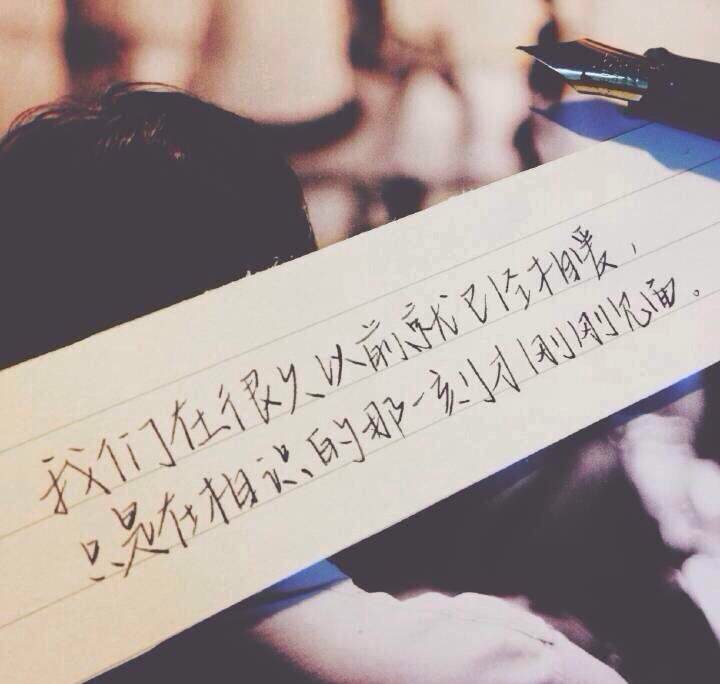 我们在很久以前就已经相爱，
只是在相识的那一刻才刚刚见面。